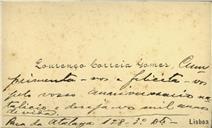 Lourenço Correia Gomes, Cum
primenta-vos e felicita-vos
pelo vosso anniversario na
talicio e deseja-vos mil annos
de vida.
Rua da Atalaya 178-3º
Lisboa